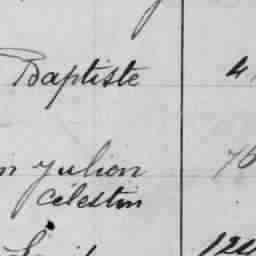 Baptiste 4
n Julien 76
Celestin
124